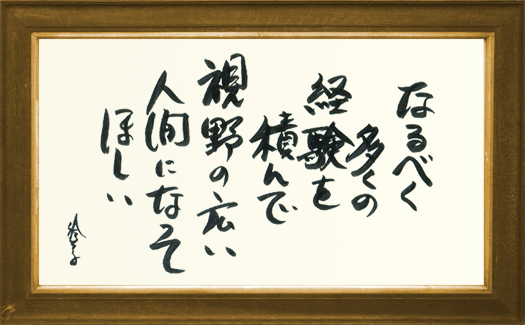 なるべく
多くの
経験を
積んで
視野の広い
人間になって
ほしい